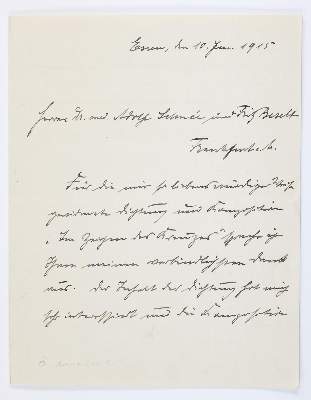 Essen, den 10. Jan. 1915
Herren Dr. med. Adolf und Fritz
Frankfurt a. M.
Für die mir so liebenswürdiger Weise
gewidmete Dichtung und Komposition
„Im Zeichen des Kreuzes“ spreche ich
Ihnen meinen verbindlichsten Dank
aus. Der Inhalt der Dichtung hat mich
sehr interessiert und die Komposition